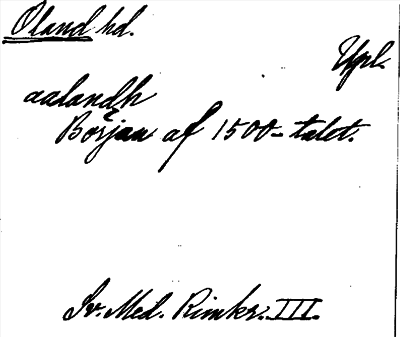 Öland hd.
Upl.
aalandh
Början af 1500-talet.
Sv. Med. Rimkr. III.